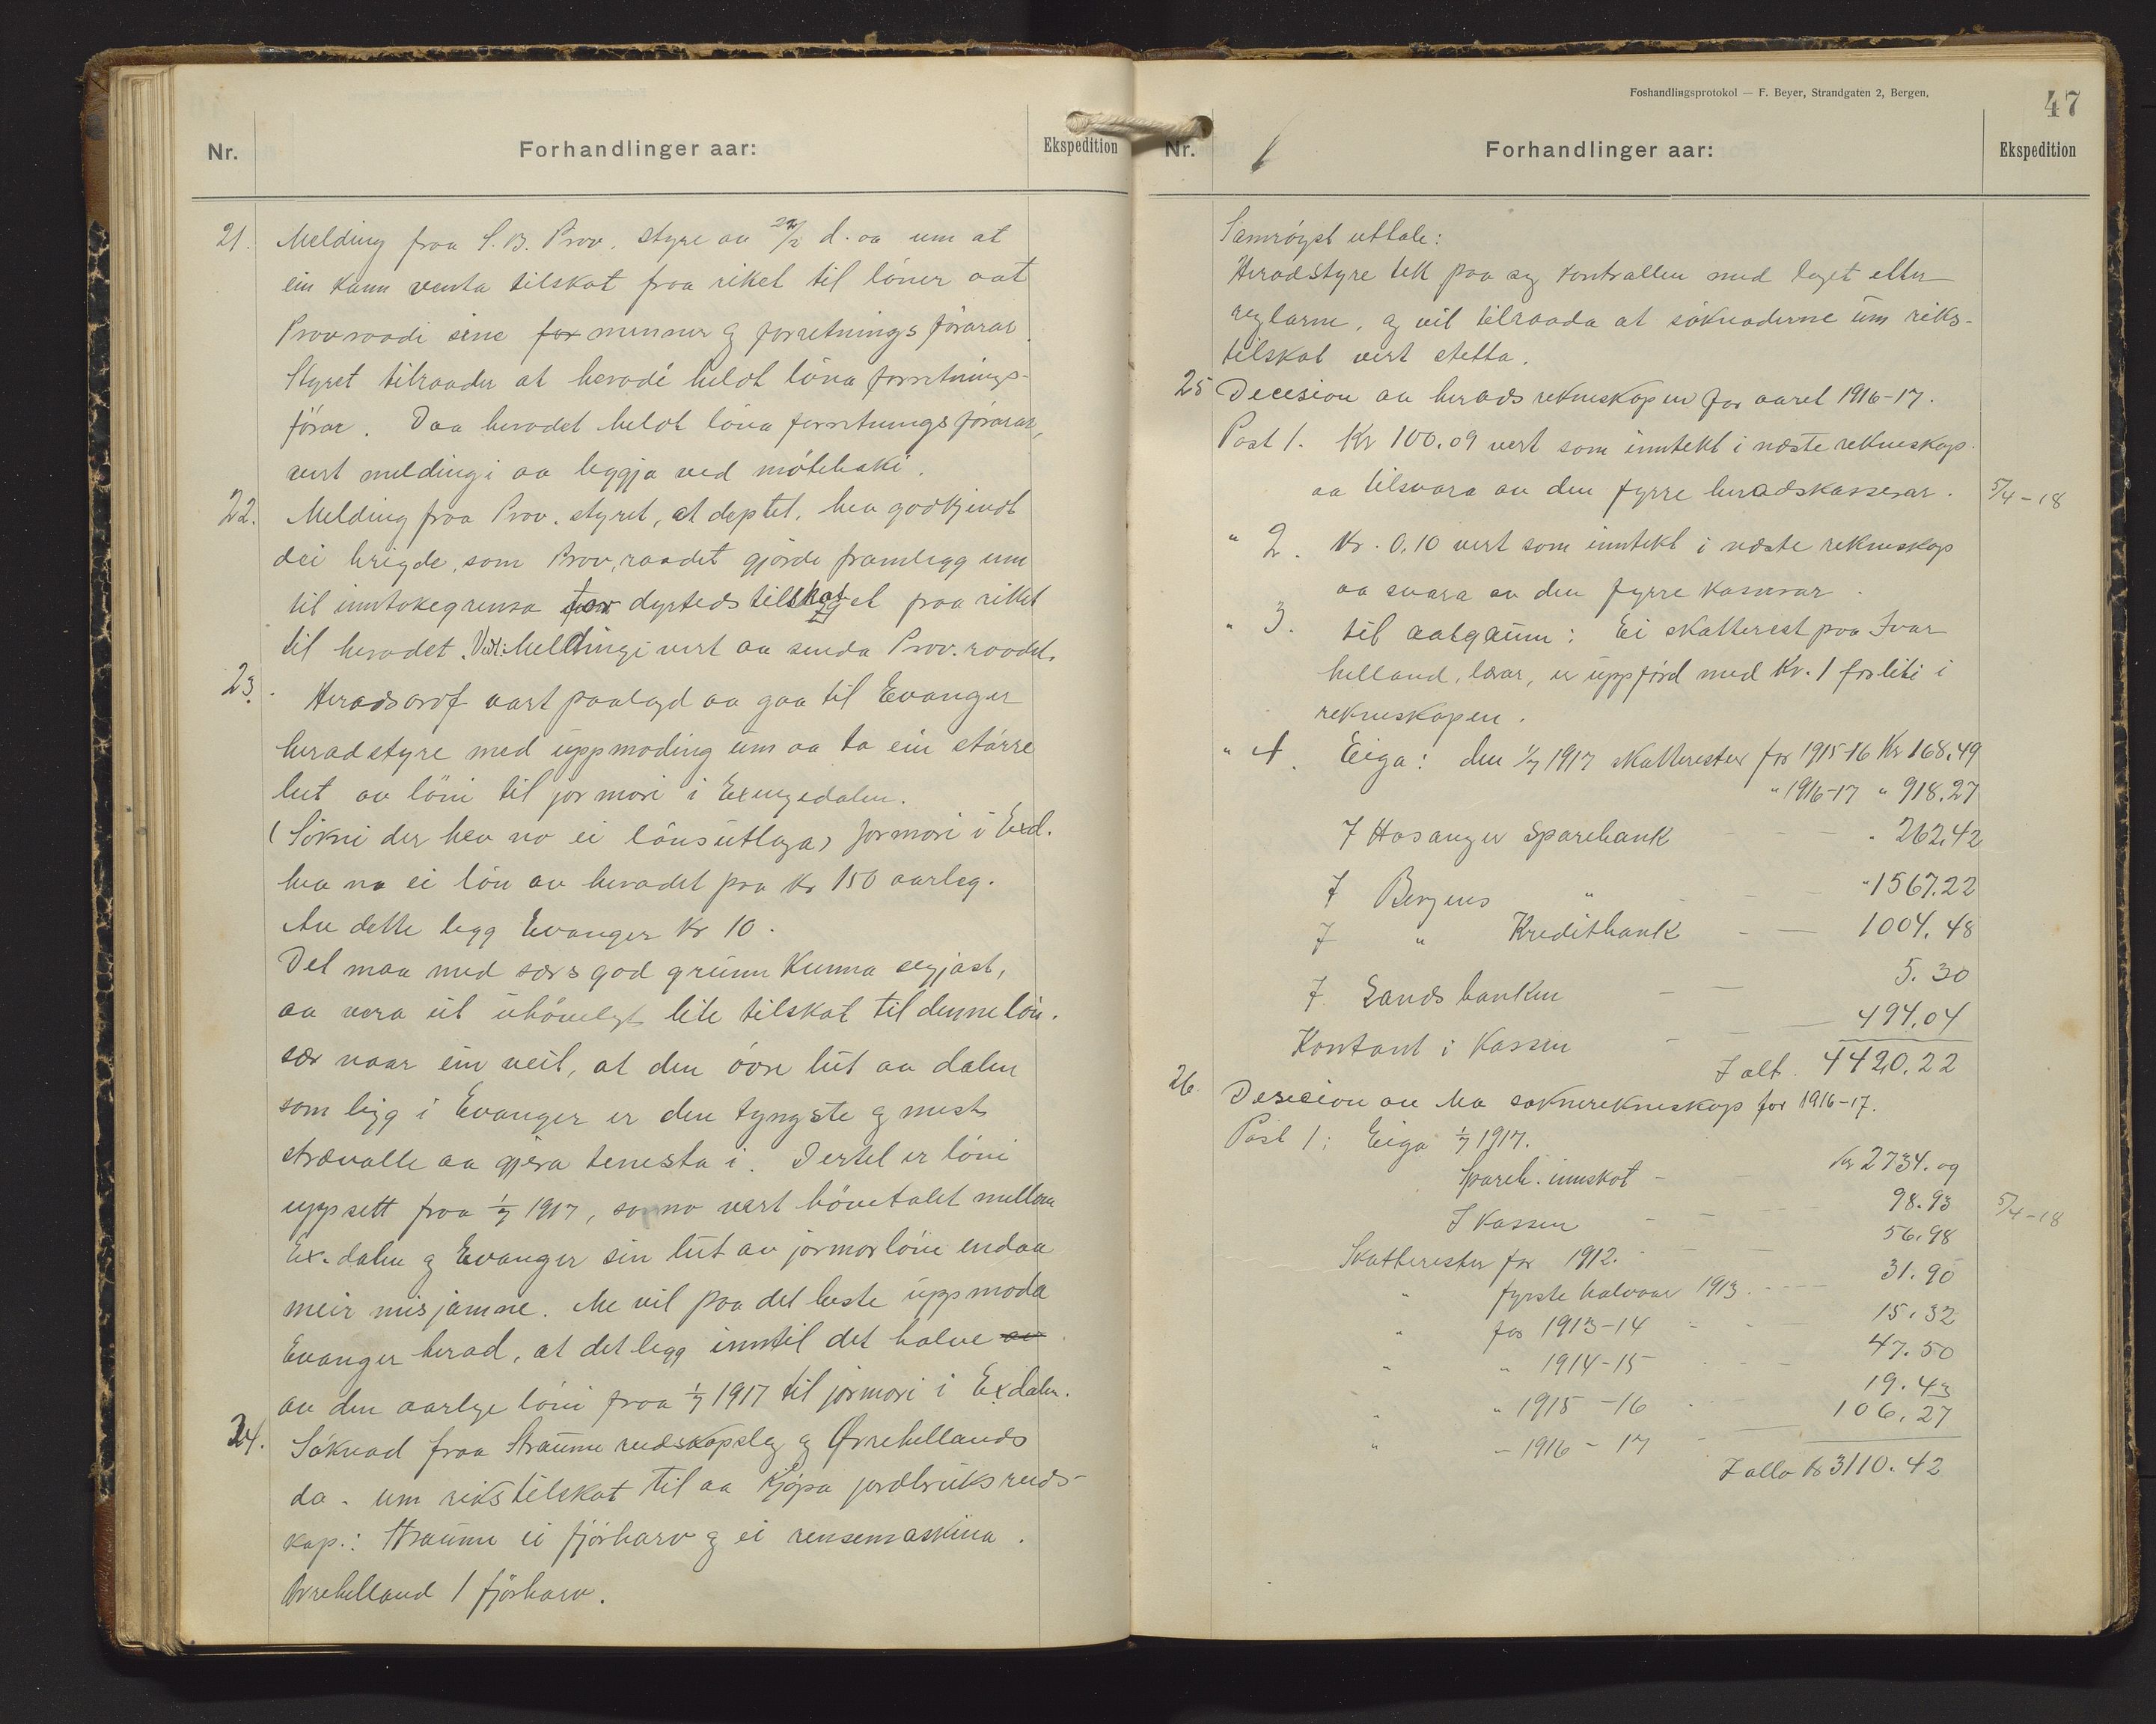 Nr.
Forhandlinger aar:
Ekspedition
21. Melding fraa S. B. Prov. styre av 22/2 d. aa um at
ein kann venta tilskot fraa riket til löner aat
Provraadi sine for menner og forretningsförarar.
Styret tilraader at heradè heldt löna forretnings-
förar. Daa heradet heldt löna forretningsförarar,
vert meldingi aa leggja ved mötebaki.
22. Melding fraa Prov. styret, at deptet. hev godkjendt
dei brigde, som Prov, raadet gjorde framlegg um
til inntokegrensa for dyrtedstilskot paa riket
til heradet. Meldingi vert aa senda Prov. raadet.
23. Heradsordf vart paalagd aa gaa til Evanger
heradstyre med uppmoding um aa ta ein större
lut av löni til jormori i Exingedalen.
(Sökni der hev no ei lönsutlaga) Jormori i Exd.
hev no ei lön av heradet paa Kr 150 aarleg.
Av dette legg Evanger Kr 10.
Det maa med særs god grunn kunna segjast,
aa vera eit uhöveligt lite tilskot til denne lön.
sær naar ein veit, at den övre lut av dalen
som ligg i Evanger er den tyngste og mest
strævalle aa gjera tenesta i. Dertel er löni
uppsett fraa 1/7 1917, so no vert hövetalet millom
Ex. dalen og Evanger sin lut av jormorlöni endaa
meir misjamne. Me vil paa det beste uppmoda
Evanger herad, at det legg inntil det halve av
av den aarlege löni fraa 1/7 1917 til jormori i Exdalen.
24. Söknad fraa Straume reidskapslag og Øvrehellands
do. um rikstilskot til aa kjöpa jordbruksreids-
kap.: Straume ei fjörharv og ei rensemaskina.
Øvrehelland 1 fjörharv.
Foshandlingsprotokol — F. Beyer, Strandgaten 2, Bergen.
47
Nr.
Forhandlinger aar:
Ekspedition
Samröyst uttale:
Heradstyre tek paa seg kontrollen med laget etter
reglarne, og vil tilraada at söknaderne um riks-
tilskot vert stetta.
25 Decision av heradsrekneskapen for aaret 1916-17.
Post 1. Kr 100.09 vert som inntekt i næste rekneskap
aa tilsvara av den fyrre heradskasserar. 5/4-18
" 2. Kr. 0.10 vert som inntekt i næste rekneskap
aa svara av den fyrre kaserar.
" 3. til aatgaum: Ei skatterest paa Ivar
helland, lærar, er uppförd med Kr. 1 forlite i
rekneskapen.
" 4. Eiga: den 1/7 1917 skatterester for 1915-16 Kr 168.49
" 1916-17 " 918.27
I Hosanger Sparebank - - - " 262.42
I Bergens " - - " 1567.22
I " Kreditbank - - 1004.48
I Landsbanken - - 5.30
Kontant i Kassen - - 494.04
I alt. 4420.22
26. Desicion av Mo soknerekneskap for 1916-17.
Post 1: Eiga 1/7 1917.
Spareb. innskot - Kr 2734.09
I Kassen - - - 98.93 5/4-18
Skatterester for 1912. - - - 56.98
" fyrste halvaar 1913. - - - 31.90
" for 1913-14 - - - 15.32
" " 1914-15 - - - 47.50
" " 1915-16 - - 19.43
" " 1916-17 - - 106.27
I alla Kr 3110.42